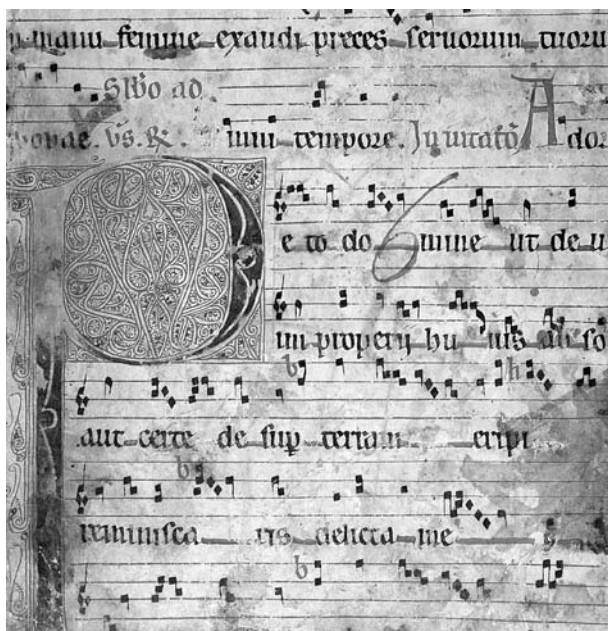 manu femine exaudi preces seruorum tuoru
ad
tempore. Inuitatō Ador
Peto domine ut de u
improperij huius abso
aut certe de sup terram eripi
reminiscaris delicta me